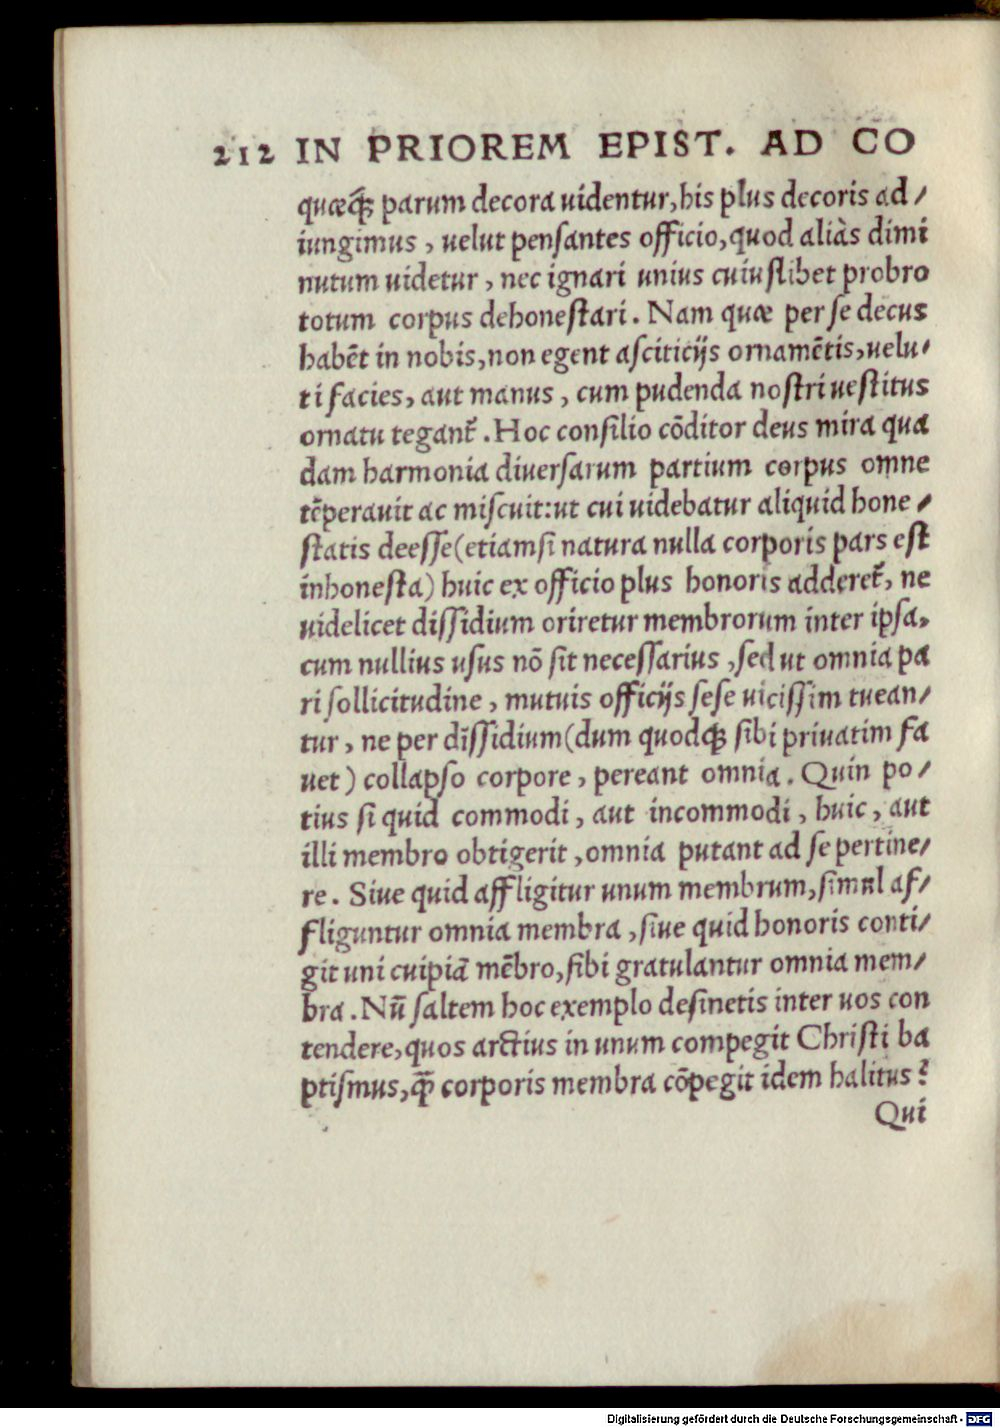 212 IN PRIOREM EPIST. AD CO
quæq́ꝫ parum decora uidentur, his plus decoris ad/
iungimus, uelut penſantes officio, quod aliàs dimi
nutum uidetur, nec ignari unius cuiuſlibet probro
totum corpus dehoneſtari. Nam quæ per ſe decus
habẽt in nobis, non egent aſciticijs ornamẽtis, uelu/
ti facies, aut manus, cum pudenda noſtri ueſtitus
ornatu tegant᷑. Hoc conſilio cõditor deus mira qua
dam harmonia diuerſarum partium corpus omne
tẽperauit ac miſcuit: ut cui uidebatur aliquid hone/
ſtatis deeſſe (etiamſi natura nulla corporis pars eſt
inhoneſta) huic ex officio plus honoris adderet᷑, ne
uidelicet diſſidium oriretur membrorum inter ipſa,
cum nullius uſus nõ ſit neceſſarius, ſed ut omnia pa
ri ſollicitudine, mutuis officijs ſeſe uiciſſim tuean/
tur, ne per diſſidium (dum quodq́ꝫ ſibi priuatim fa
uet) collapſo corpore, pereant omnia. Quin po/
tius ſi quid commodi, aut incommodi, huic, aut
illi membro obtigerit, omnia putant ad ſe pertine/
re. Siue quid affligitur unum membrum, ſimul af/
fliguntur omnia membra, ſiue quid honoris conti/
git uni cuipiã mẽbro, ſibi gratulantur omnia mem/
bra. Nũ ſaltem hoc exemplo deſinetis inter uos con
tendere, quos arctius in unum compegit Chriſti ba
ptiſmus, q̃ corporis membra cõpegit idem halitus?
Qui
Digitalisierung gefördert durch die Deutsche Forschungsgemeinschaft - DFG